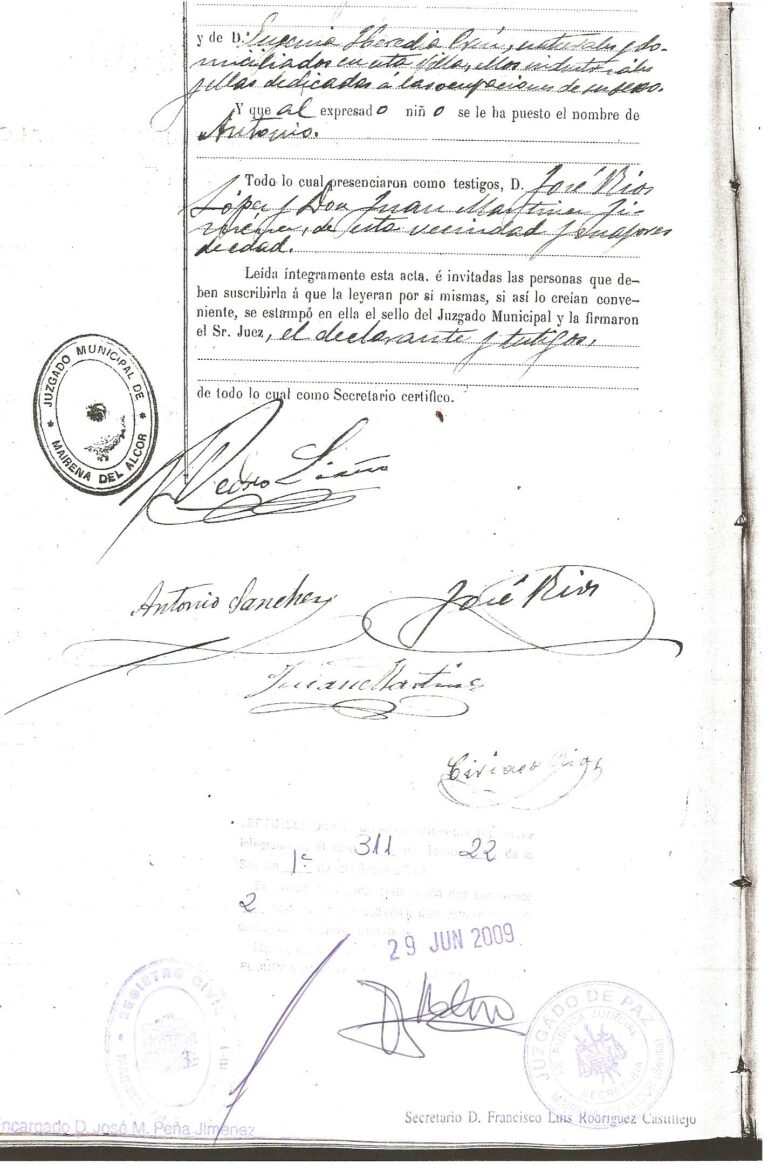 y de D.ª Eugenia Heredia Crín, naturales y do-
miciliados en esta villa, ellos industriales
y ellas dedicadas á las ocupaciones de su sexo.
Y que al expresado niño se le ha puesto el nombre de
Antonio.
Todo lo cual presenciaron como testigos, D. José Rios
López y Don Juan Martinez Ji-
ménez, de esta vecindad y mayores
de edad.
Leída íntegramente esta acta, é invitadas las personas que de-
ben suscribirla á que la leyeran por sí mismas, si así lo creían conve-
niente, se estampó en ella el sello del Juzgado Municipal y la firmaron
el Sr. Juez, el declarante y testigos,
de todo lo cual como Secretario certifico.
JUZGADO MUNICIPAL DE
MAIRENA DEL ALCOR
Pedro Liaño
Antonio Sanchez
José Rios
Juan Martinez
Ciriaco Rios
1ª 311 22
2
29 JUN 2009
REGISTRO CIVIL
JUZGADO DE PAZ
SECRETARIA
Encargado D. José M. Peña Jiménez
Secretario D. Francisco Luis Rodríguez Castillejo